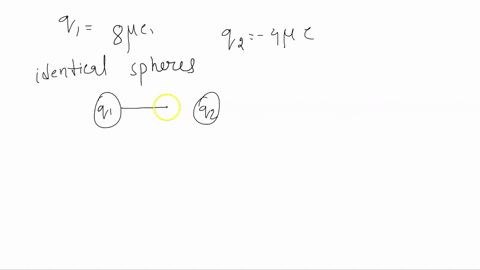 q₁ = 8μc, q₂ = -4μC
identical spheres
q₁ q₂